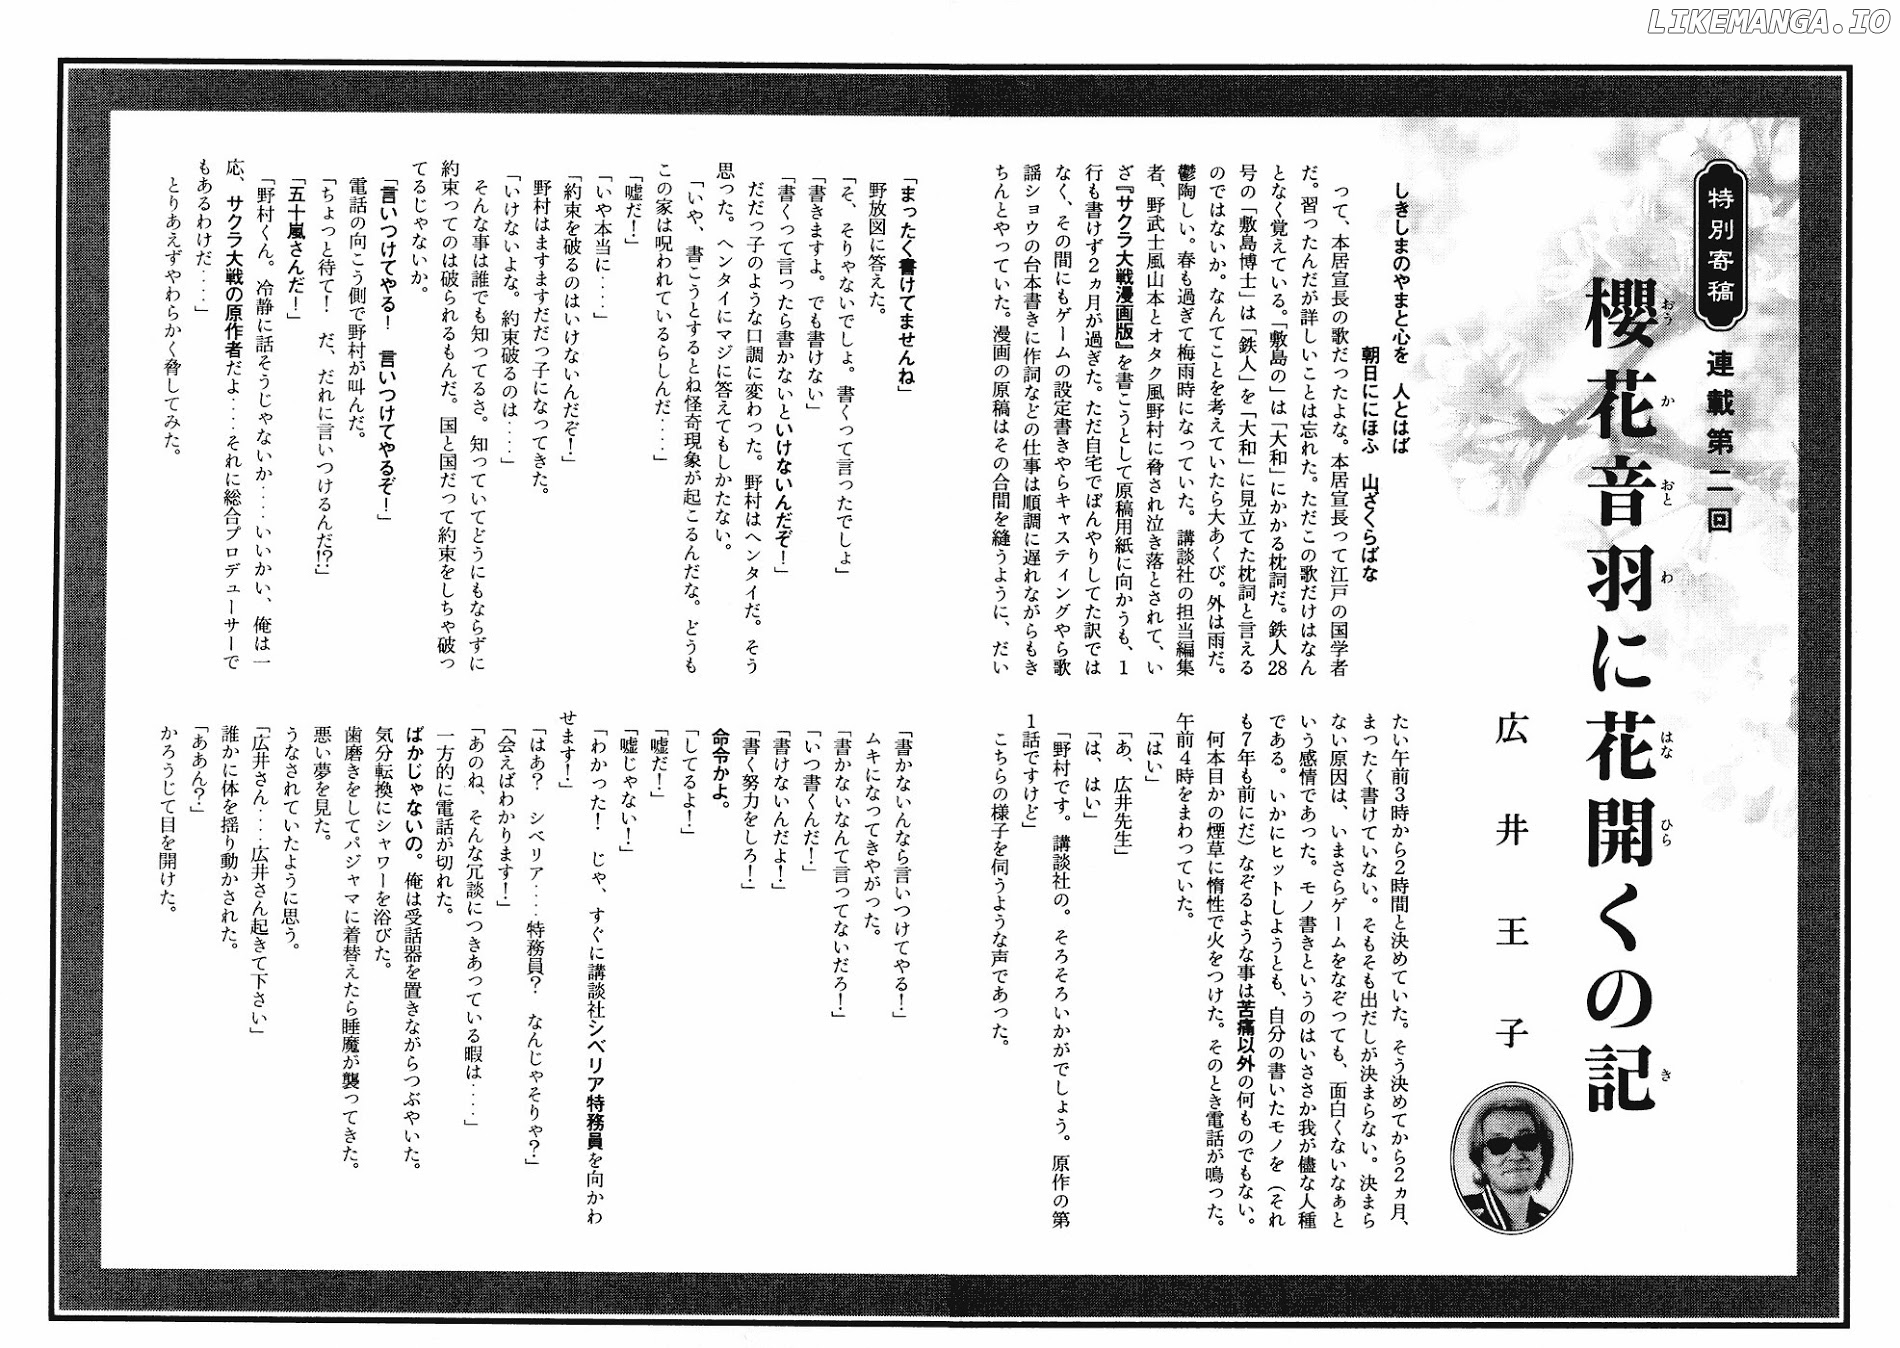 LIKEMANGA.IO
特別寄稿
連載第二回
櫻花音羽に花開くの記
おう か おと わ はな ひら き
広井王子
しきしまのやまと心を 人とはば
朝日ににほふ 山ざくらばな
って、本居宣長の歌だったよな。本居宣長って江戸の国学者
だ。習ったんだが詳しいことは忘れた。ただこの歌だけはなん
となく覚えている。「敷島の」は「大和」にかかる枕詞だ。鉄人28
号の「敷島博士」は「鉄人」を「大和」に見立てた枕詞と言える
のではないか。なんてことを考えていたら大あくび。外は雨だ。
鬱陶しい。春も過ぎて梅雨時になっていた。講談社の担当編集
者、野武士風山本とオタク風野村に脅され泣き落とされて、い
ざ『サクラ大戦漫画版』を書こうとして原稿用紙に向かうも、1
行も書けず2ヵ月が過ぎた。ただ自宅でぼんやりしてた訳では
なく、その間にもゲームの設定書きやらキャスティングやら歌
謡ショウの台本書きに作詞などの仕事は順調に遅れながらもき
ちんとやっていた。漫画の原稿はその合間を縫うように、だい
たい午前3時から2時間と決めていた。そう決めてから2ヵ月、
まったく書けていない。そもそも出だしが決まらない。決まら
ない原因は、いまさらゲームをなぞっても、面白くないなぁと
いう感情であった。モノ書きというのはいささか我が儘な人種
である。いかにヒットしようとも、自分の書いたモノを（それ
も7年も前にだ）なぞるような事は苦痛以外の何ものでもない。
何本目かの煙草に惰性で火をつけた。そのとき電話が鳴った。
午前4時をまわっていた。
「はい」
「あ、広井先生」
「は、はい」
「野村です。講談社の。そろそろいかがでしょう。原作の第
1話ですけど」
こちらの様子を伺うような声であった。
「まったく書けてませんね」
野放図に答えた。
「そ、そりゃないでしょ。書くって言ったでしょ」
「書きますよ。でも書けない」
「書くって言ったら書かないといけないんだぞ！」
だだっ子のような口調に変わった。野村はヘンタイだ。そう
思った。ヘンタイにマジに答えてもしかたない。
「いや、書こうとするとね怪奇現象が起こるんだな。どうも
この家は呪われているらしんだ‥‥」
「嘘だ！」
「いや本当に‥‥」
「約束を破るのはいけないんだぞ！」
野村はますますだだっ子になってきた。
「いけないよな。約束破るのは‥‥」
そんな事は誰でも知ってるさ。知っていてどうにもならずに
約束ってのは破られるもんだ。国と国だって約束をしちゃ破っ
てるじゃないか。
「言いつけてやる！ 言いつけてやるぞ！」
電話の向こう側で野村が叫んだ。
「ちょっと待て！ だ、だれに言いつけるんだ!?」
「五十嵐さんだ！」
「野村くん。冷静に話そうじゃないか‥‥いいかい、俺は一
応、サクラ大戦の原作者だよ‥‥それに総合プロデューサーで
もあるわけだ‥‥」
とりあえずやわらかく脅してみた。
「書かないんなら言いつけてやる！」
ムキになってきやがった。
「書かないなんて言ってないだろ！」
「いつ書くんだ！」
「書けないんだよ！」
「書く努力をしろ！」
命令かよ。
「してるよ！」
「嘘だ！」
「嘘じゃない！」
「わかった！ じゃ、すぐに講談社シベリア特務員を向かわ
せます！」
「はあ？ シベリア‥‥特務員？ なんじゃそりゃ？」
「会えばわかります！」
「あのね、そんな冗談につきあっている暇は‥‥」
一方的に電話が切れた。
ばかじゃないの。俺は受話器を置きながらつぶやいた。
気分転換にシャワーを浴びた。
歯磨きをしてパジャマに着替えたら睡魔が襲ってきた。
悪い夢を見た。
うなされていたように思う。
「広井さん‥‥広井さん起きて下さい」
誰かに体を揺り動かされた。
「ああん？」
かろうじて目を開けた。